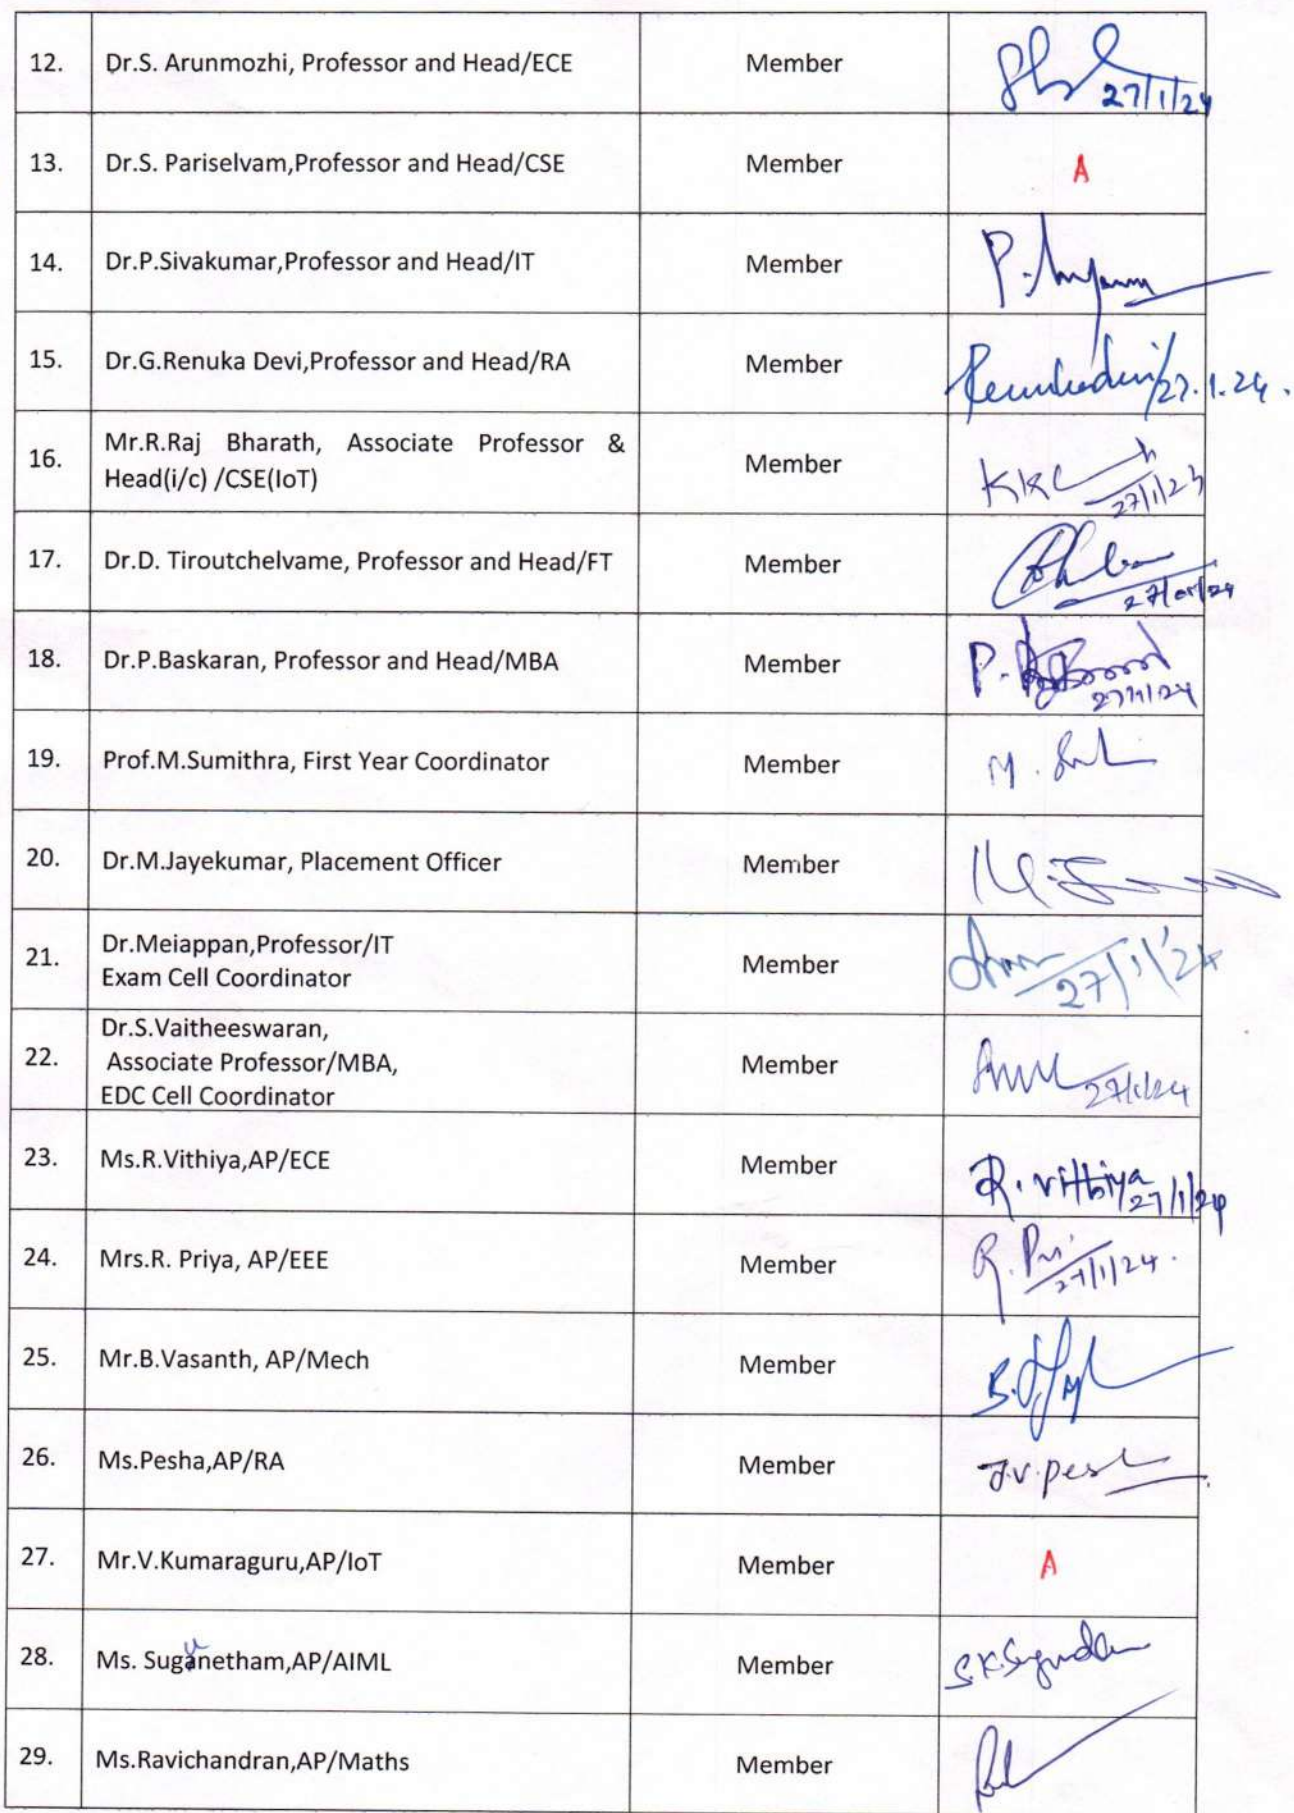 12. Dr.S. Arunmozhi, Professor and Head/ECE Member 27/1/24
13. Dr.S. Pariselvam,Professor and Head/CSE Member A
14. Dr.P.Sivakumar,Professor and Head/IT Member
15. Dr.G.Renuka Devi,Professor and Head/RA Member 27.1.24.
16. Mr.R.Raj Bharath, Associate Professor &
Head(i/c) /CSE(IoT) Member 27/1/23
17. Dr.D. Tiroutchelvame, Professor and Head/FT Member 27/01/24
18. Dr.P.Baskaran, Professor and Head/MBA Member 27/1/24
19. Prof.M.Sumithra, First Year Coordinator Member
20. Dr.M.Jayekumar, Placement Officer Member
21. Dr.Meiappan,Professor/IT
Exam Cell Coordinator Member 27/1/24
22. Dr.S.Vaitheeswaran,
Associate Professor/MBA, Member 27/1/24
EDC Cell Coordinator
23. Ms.R.Vithiya,AP/ECE Member R. Vithiya 27/1/24
24. Mrs.R. Priya, AP/EEE Member 27/1/24.
25. Mr.B.Vasanth, AP/Mech Member
26. Ms.Pesha,AP/RA Member
27. Mr.V.Kumaraguru,AP/IoT Member A
28. Ms. Suganetham,AP/AIML Member
29. Ms.Ravichandran,AP/Maths Member